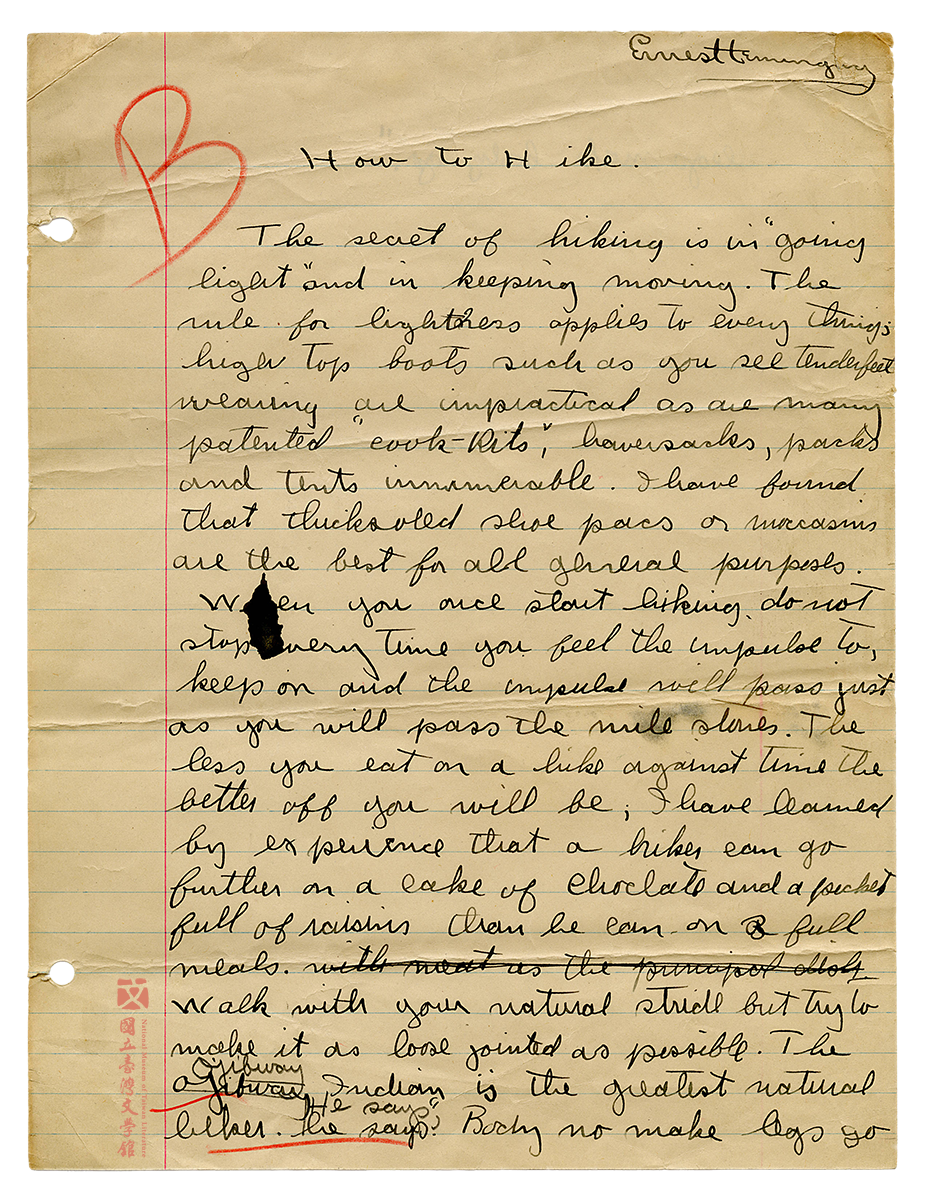 Ernest Hemingway
B
How to Hike.
The secret of hiking is in "going
light" and in keeping moving. The
rule for lightness applies to every thing;
high top boots such as you see tenderfeet
wearing are impractical as are many
patented "cook-kits", haversacks, packs
and tents innumerable. I have found
that thicksoled shoe pacs or moccasins
are the best for all general purposes.
When you once start hiking do not
stop every time you feel the impulse to,
keep on and the impulse will pass just
as you will pass the mile stones. The
less you eat on a hike against time the
better off you will be; I have learned
by experience that a hiker can go
further on a cake of choclate and a pocket
full of raisins than he can on 3 full
meals. with meat as the principal dish.
Walk with your natural stride but try to
make it as loose jointed as possible. The
Ojibway
Ojibway Indian is the greatest natural
He says"
hiker. he says". Body no make legs go
國立臺灣文學館
National Museum of Taiwan Literature